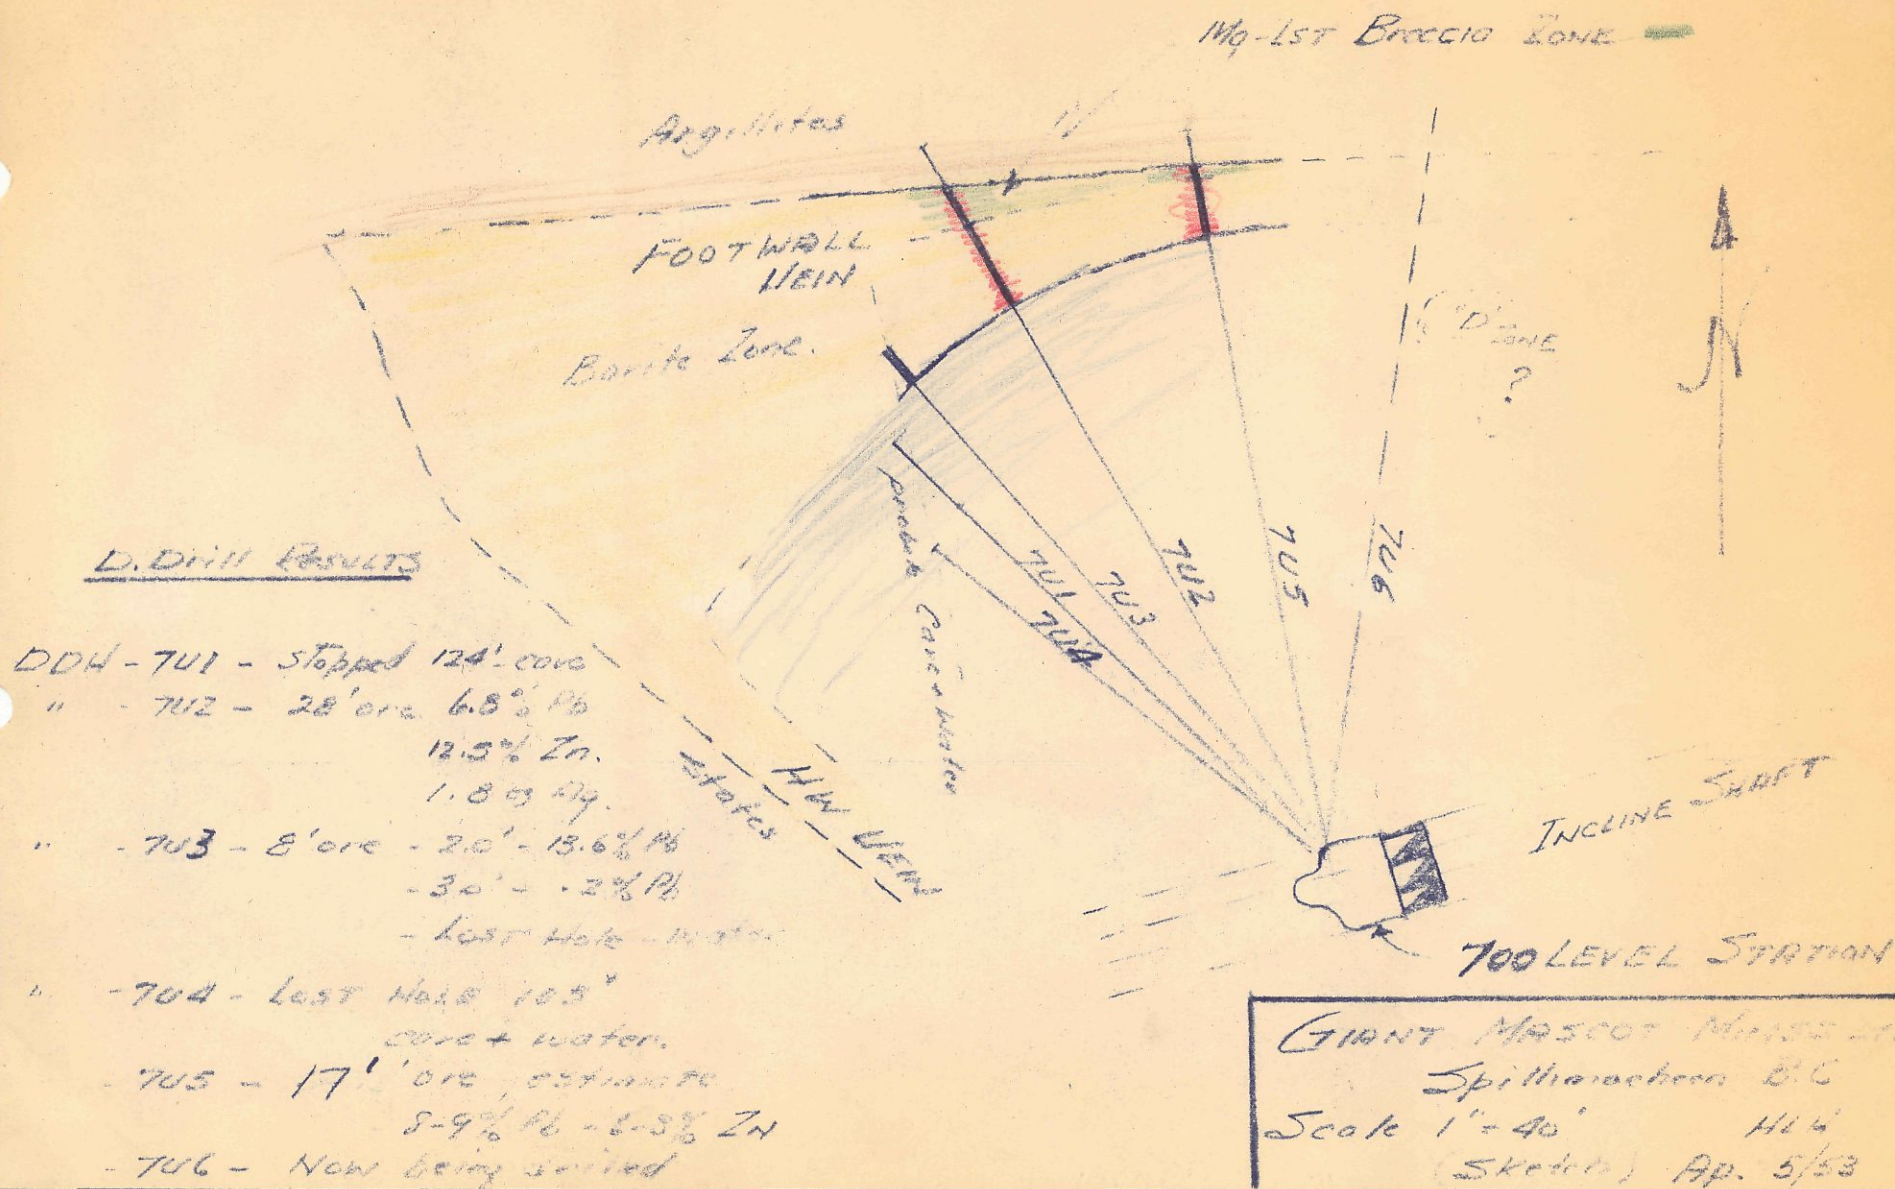 Mg-1ST Breccia ZONE
Argillites
FOOTWALL
VEIN
Barite Zone.
"D" ZONE
?
N
probable Cave & Water
7U1
7U3
7U2
7U5
7U6
7U4
HW VEIN
Slates
INCLINE SHAFT
700 LEVEL STATION
D. Drill RESULTS
DDH - 7U1 - Stopped 124' - cave
" - 7U2 - 28' ore 6.8% Pb
12.5% Zn.
1.8 oz Ag.
" - 7U3 - 8' ore - 2.0' - 13.6% Pb
- 3.0' - .2% Pb
- Lost Hole - water
" - 7U4 - Lost Hole
cave + water.
- 7U5 - 17' ore estimate
8-9% Pb - Zn
- 7U6 - Now being drilled
GIANT MASCOT MINES
Spillimacheen B.C
Scale 1" = 40'
(Sketch) Ap. 5/53